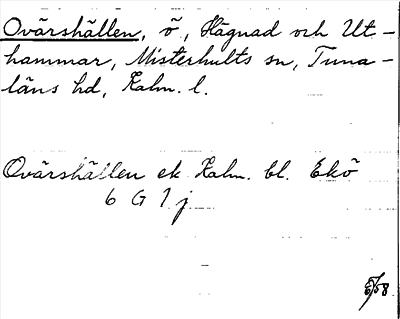 Ovärshällen, ö, Hägnad och Ut-
hammar, Misterhults sn, Tuna-
läns hd, Kalm. l.
Ovärshällen ek Kalm. bl. Ekö
6 G 7 j
5/58